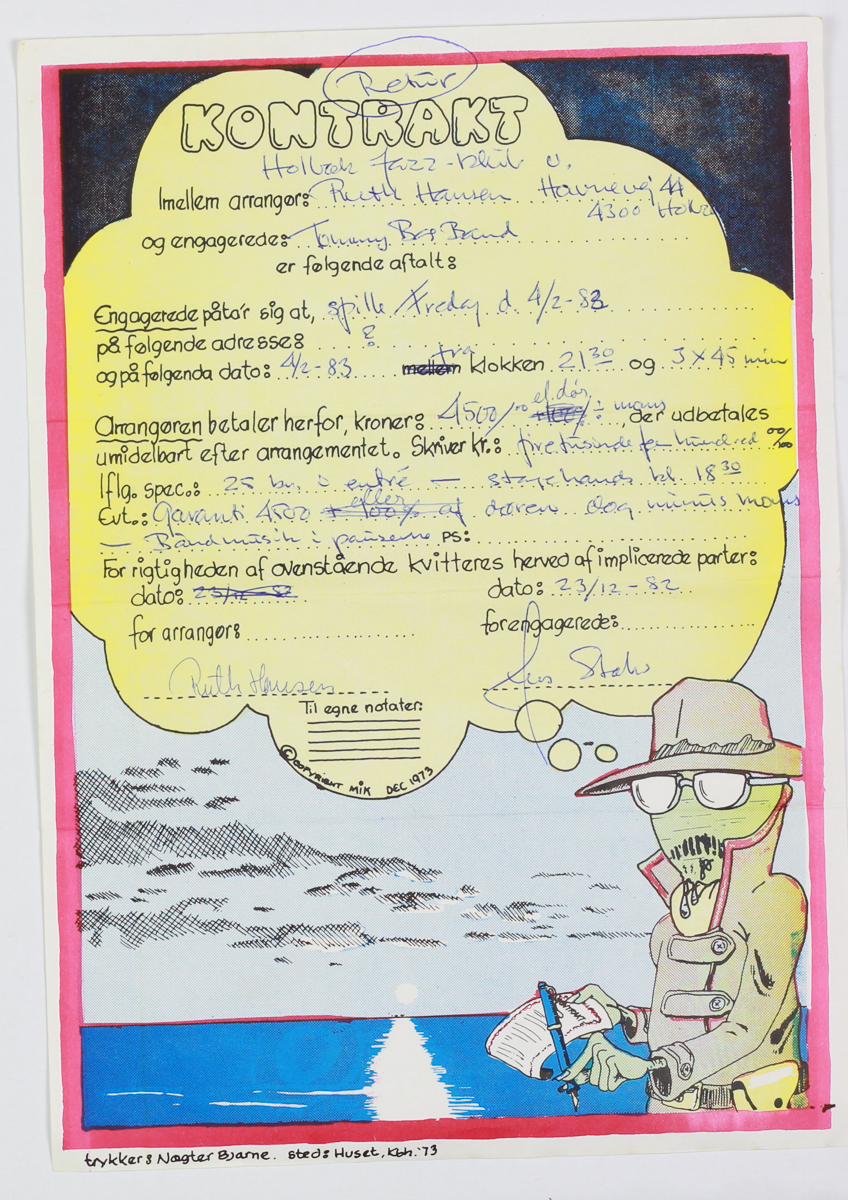 Retur
KONTRAKT
Holbæk Jazz-klub v.
Imellem arrangør: Ruth Hansen Havnevej 44
4300 Holbæk
og engagerede: Tommy Bas Band
er følgende aftalt:
Engagerede påta'r sig at, spille Fredag d. 4/2-83
på følgende adresse: ?
og på følgende dato: 4/2-83 mellem fra klokken 21 30 og 3 x 45 min
Arrangøren betaler herfor, kroner: 4500/00 100% ÷ moms, der udbetales
umidelbart efter arrangementet. Skriver kr.: firetusindefemhundred 00/00
Iflg. spec.: 25 kr. i entré — stagehands kl. 18 30
eller
Evt.: Garanti 4500 + 100% af døren dog minus moms
— Båndmusik i pauserne PS:
For rigtigheden af ovenstående kvitteres herved af implicerede parter:
dato: 23/12-82 dato: 23/12-82
for arrangør: for engagerede:
Ruth Hansen
Til egne notater:
© COPYRIGHT MIK DEC 1973
trykker: Nægter Bjarne. sted: Huset, Kbh. '73